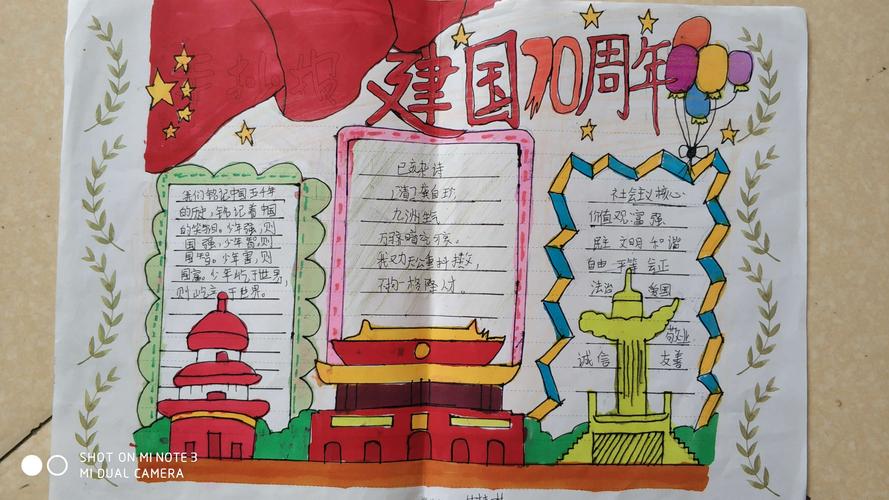 建国70周年
我们铭记中国五千年
的历史,铭记着中国
的实明。少年强,则
国强,少年智,则
国智。少年富,则
国富。少年屹于世界,
则屹于世界。
己亥杂诗
[清]龚自珍
九洲生气
万马暗究哀。
我又力天公重抖擞,
不拘一格降人才。
社会主义核心
价值观:富强
民主 文明 和谐
自由 平等 公正
法治 爱国
敬业
诚信 友善
SHOT ON MI NOTE 3
MI DUAL CAMERA